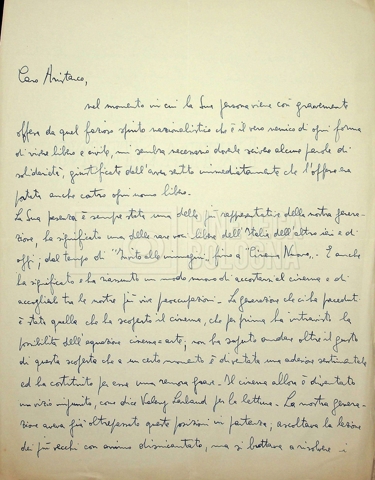 Caro Aristarco,
nel momento in cui la Sua persona viene così gravemente
offesa da quel fazioso spirito nazionalistico che è il vero nemico di ogni forma
di vivere libero e civile, mi sembra necessario doverle scrivere alcune parole di
solidarietà, giustificato dall'aver sentito immediatamente che l'offesa era
portata anche contro ogni uomo libero.
La Sua presenza è sempre stata una delle più rappresentative della nostra genera-
zione, ha significato una delle rare voci libere dell'Italia dell'altro ieri e di
oggi; dal tempo di "Invito alle immagini" fino a "Cinema Nuovo". E anche
ha significato e ha riassunto un modo nuovo di accostarsi al cinema e di
accogliere tra le nostre più vive preoccupazioni. La generazione che ci ha preceduti
è stata quella che ha scoperto il cinema, che per prima ha intravisto la
possibilità dell'equazione cinema = arte; non ha saputo andare oltre il gusto
di questa scoperta che a un certo momento è diventata una adesione sentimentale
ed ha costituito per essa una remora grave. Il cinema allora è diventato
un vizio impunito, come dice Valery Larbaud per la lettura. La nostra genera-
zione aveva già oltrepassato questa posizione in partenza; ascoltava la lezione
dei più vecchi con animo disincantato, ma si trattava a risolvere i